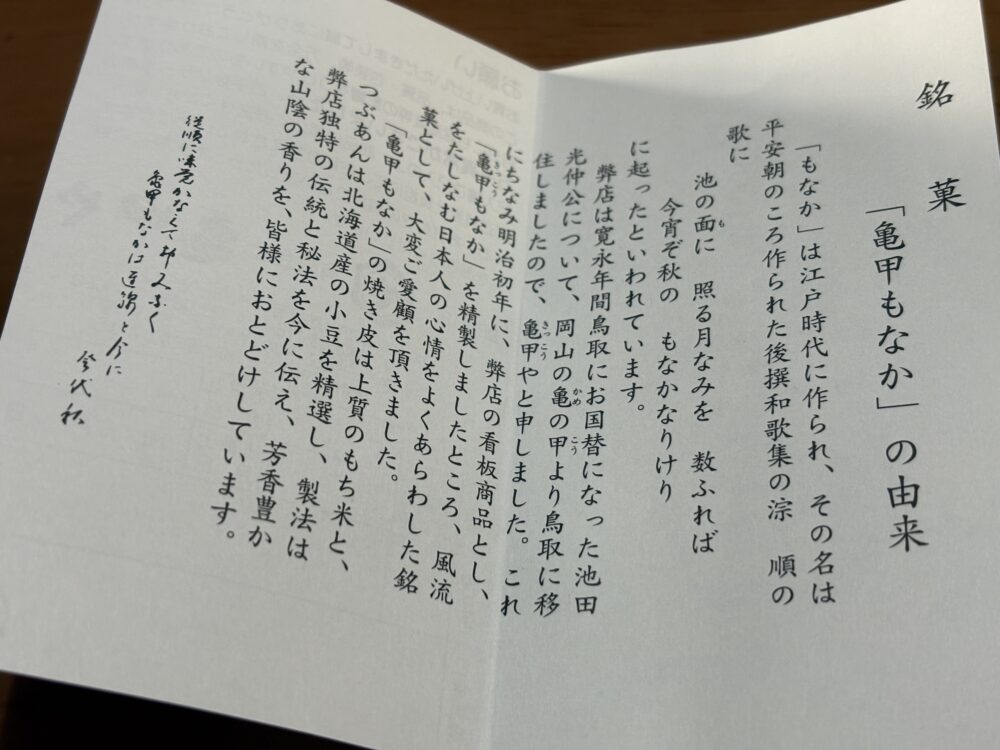 銘菓「亀甲もなか」の由来
「もなか」は江戸時代に作られ、その名は
平安朝のころ作られた後撰和歌集の淙 順の
歌に
池の面に 照る月なみを 数ふれば
今宵ぞ秋の もなかなりけり
に起ったといわれています。
弊店は寛永年間鳥取にお国替になった池田
光仲公について、岡山の亀の甲より鳥取に移
住しましたので、亀甲やと申しました。これ
にちなみ明治初年に、弊店の看板商品とし、
「亀甲もなか」を精製しましたところ、風流
をたしなむ日本人の心情をよくあらわした銘
菓として、大変ご愛顧を頂きました。
「亀甲もなか」の焼き皮は上質のもち米と、
つぶあんは北海道産の小豆を精選し、製法は
弊店独特の伝統と秘法を今に伝え、芳香豊か
な山陰の香りを、皆様におとどけしています。
亀甲もなかは
お願い